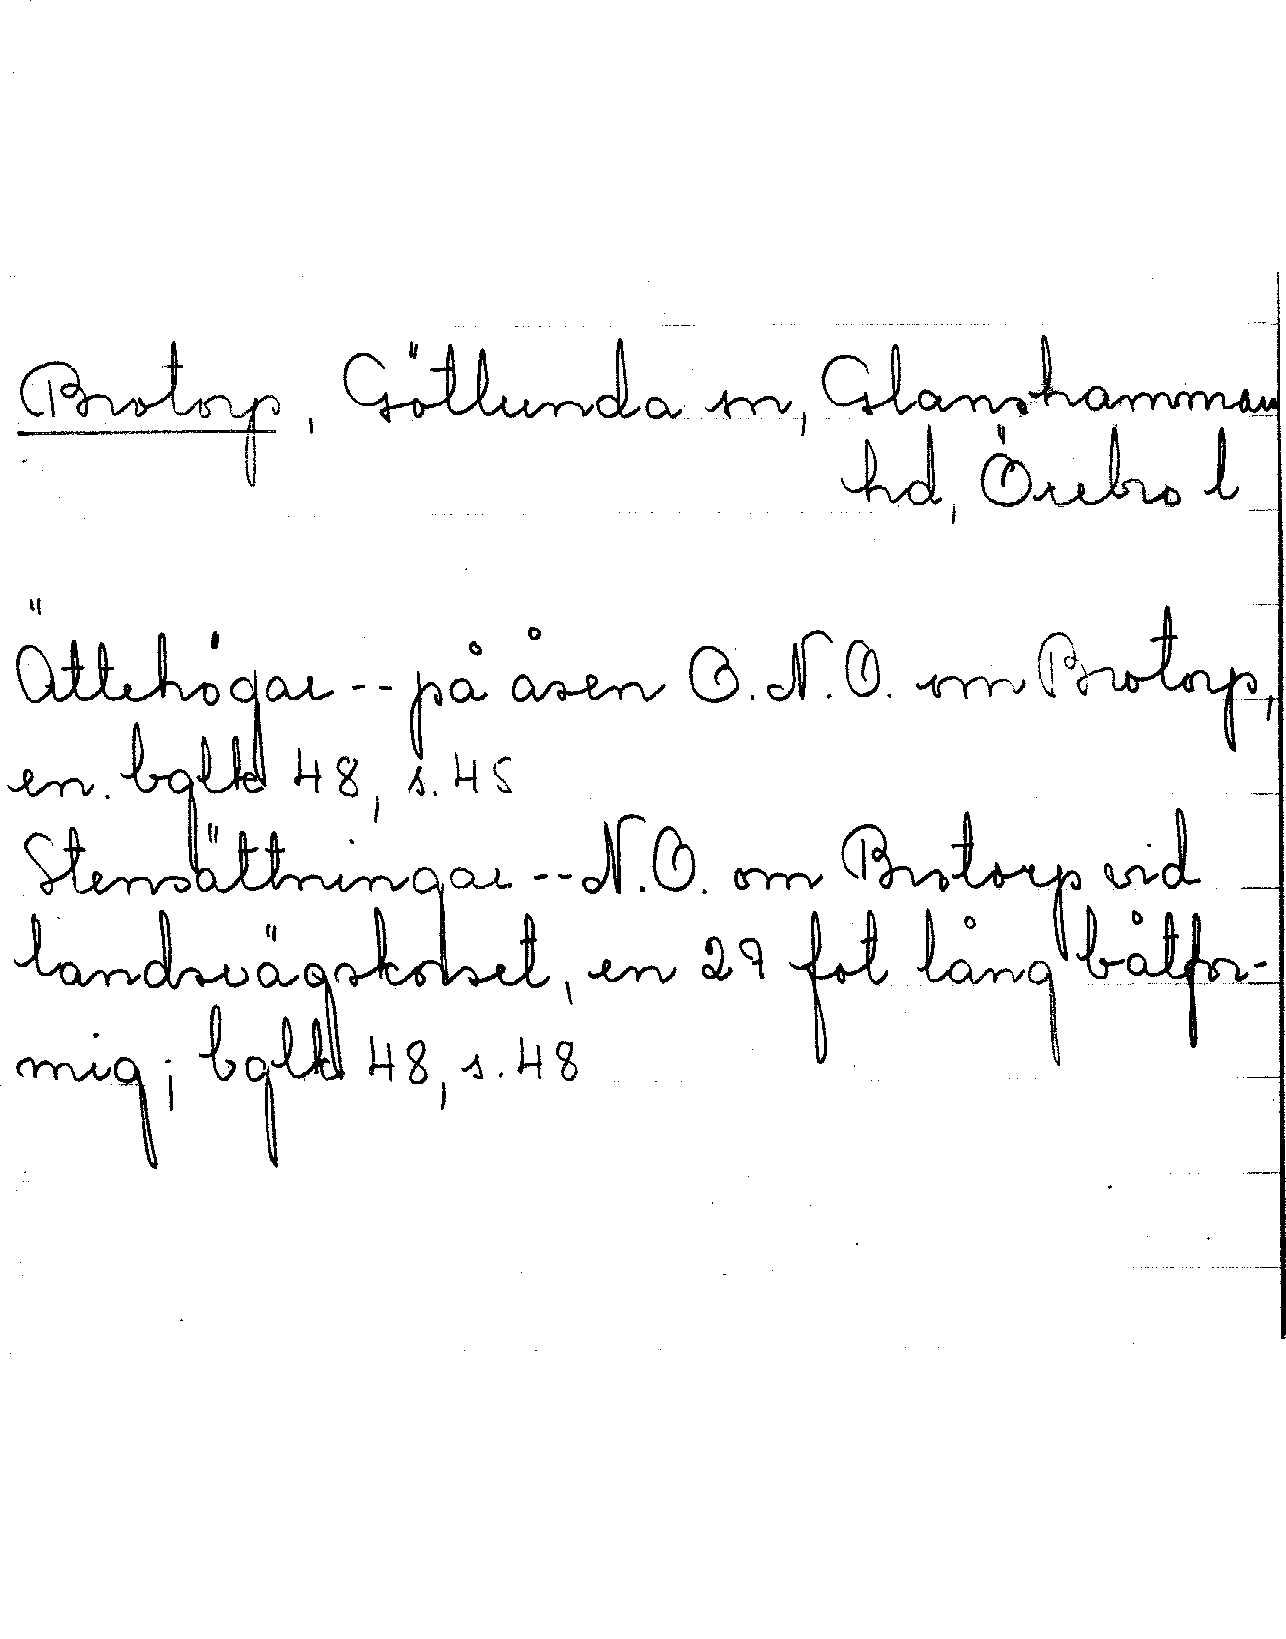 Brotorp, Götlunda sn, Glanshammars
hd, Örebro l
Ättehögar -- på åsen O.N.O. om Brotorp,
en. bglbl 48, s. 45
Stensättningar -- N.O. om Brotorp vid
landsvägskorset, en 29 fot lång båtfor-
mig; bglbl 48, s. 48